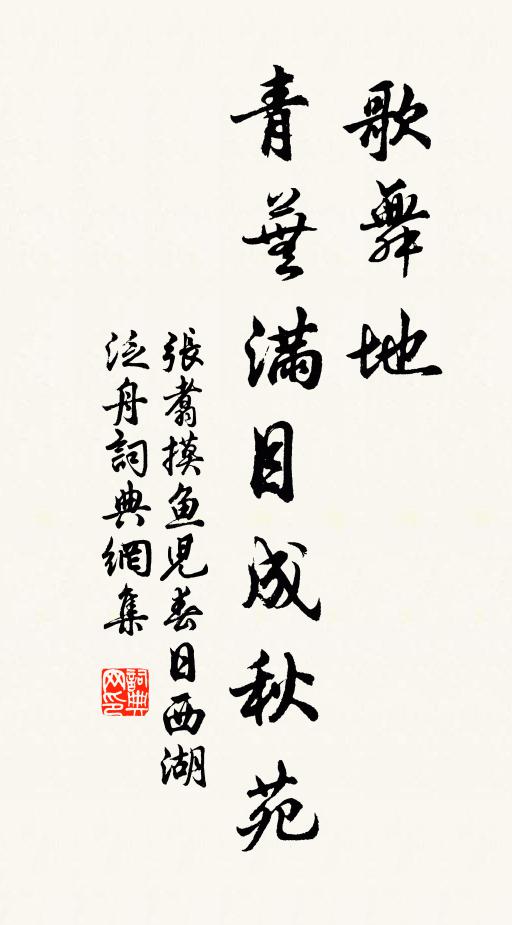 歌舞地
青蕪滿目成秋苑
張翥摸魚兒春日西湖
泛舟詞典網集
詞典网印